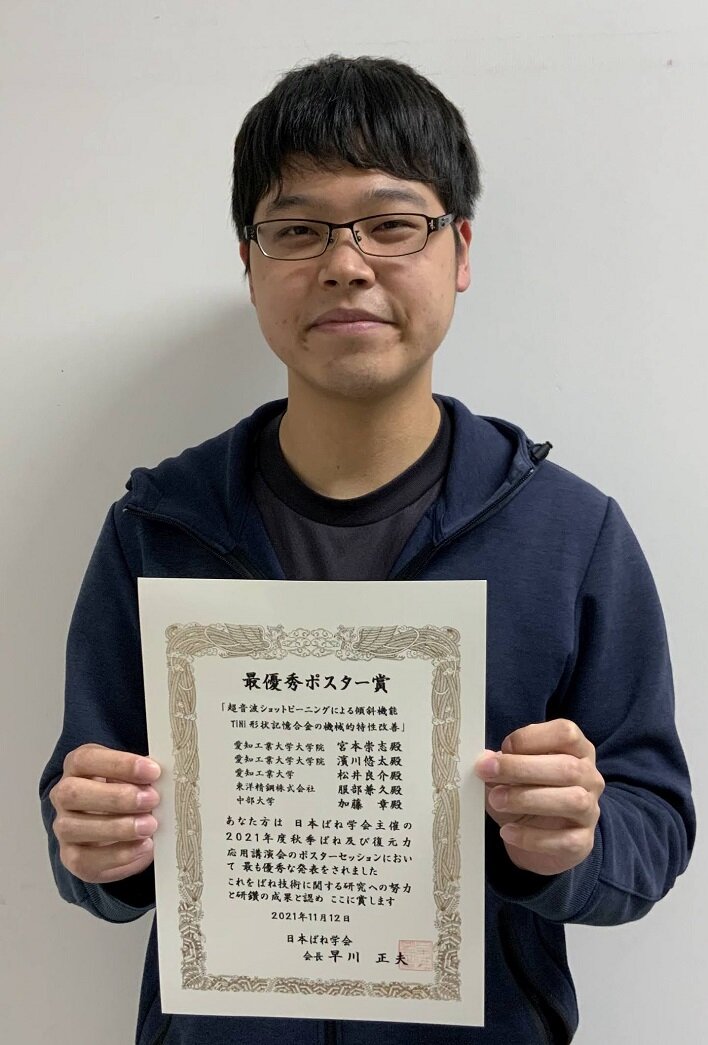 最優秀ポスター賞
「超音波ショットピーニングによる傾斜機能
TiNi形状記憶合金の機械的特性改善」
愛知工業大学大学院 宮本崇志殿
愛知工業大学大学院 濱川悠太殿
愛知工業大学 松井良介殿
東洋精鋼株式会社 服部兼久殿
中部大学 加藤 章殿
あなた方は 日本ばね学会主催の
2021年度秋季ばね及び復元力
応用講演会のポスターセッションにおい
て 最も優秀な発表をされました
これをばね技術に関する研究への努力
と研鑽の成果と認め ここに賞します
2021年11月12日
日本ばね学会
会長 早川 正夫